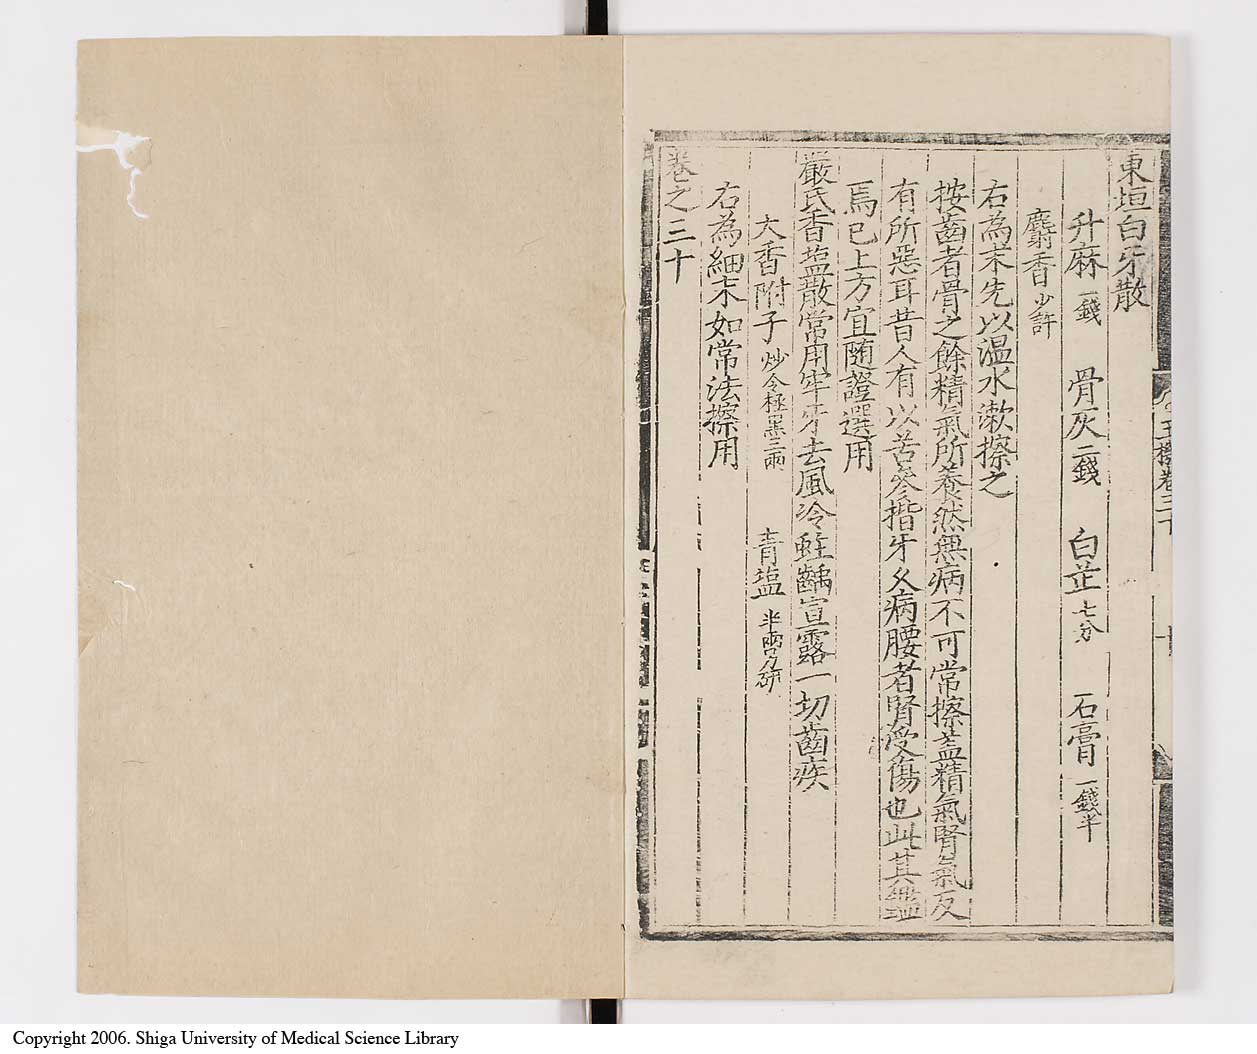 東垣白牙散
升麻一錢　骨灰二錢　白芷七分　石膏一錢半
麝香少許
右為末先以温水漱擦之
按齒者骨之餘精氣所養然無病不可常擦蓋精氣腎氣反
有所惡耳昔人有以苦参揩牙久病腰者腎受傷也此其
焉已上方宜随證選用
嚴氏香塩散常用牢牙去風冷蛀齲宣露一切齒疾
大香附子炒令極黑三兩　青塩半兩另研
右為細末如常法擦用
卷之三十
Copyright 2006. Shiga University of Medical Science Library